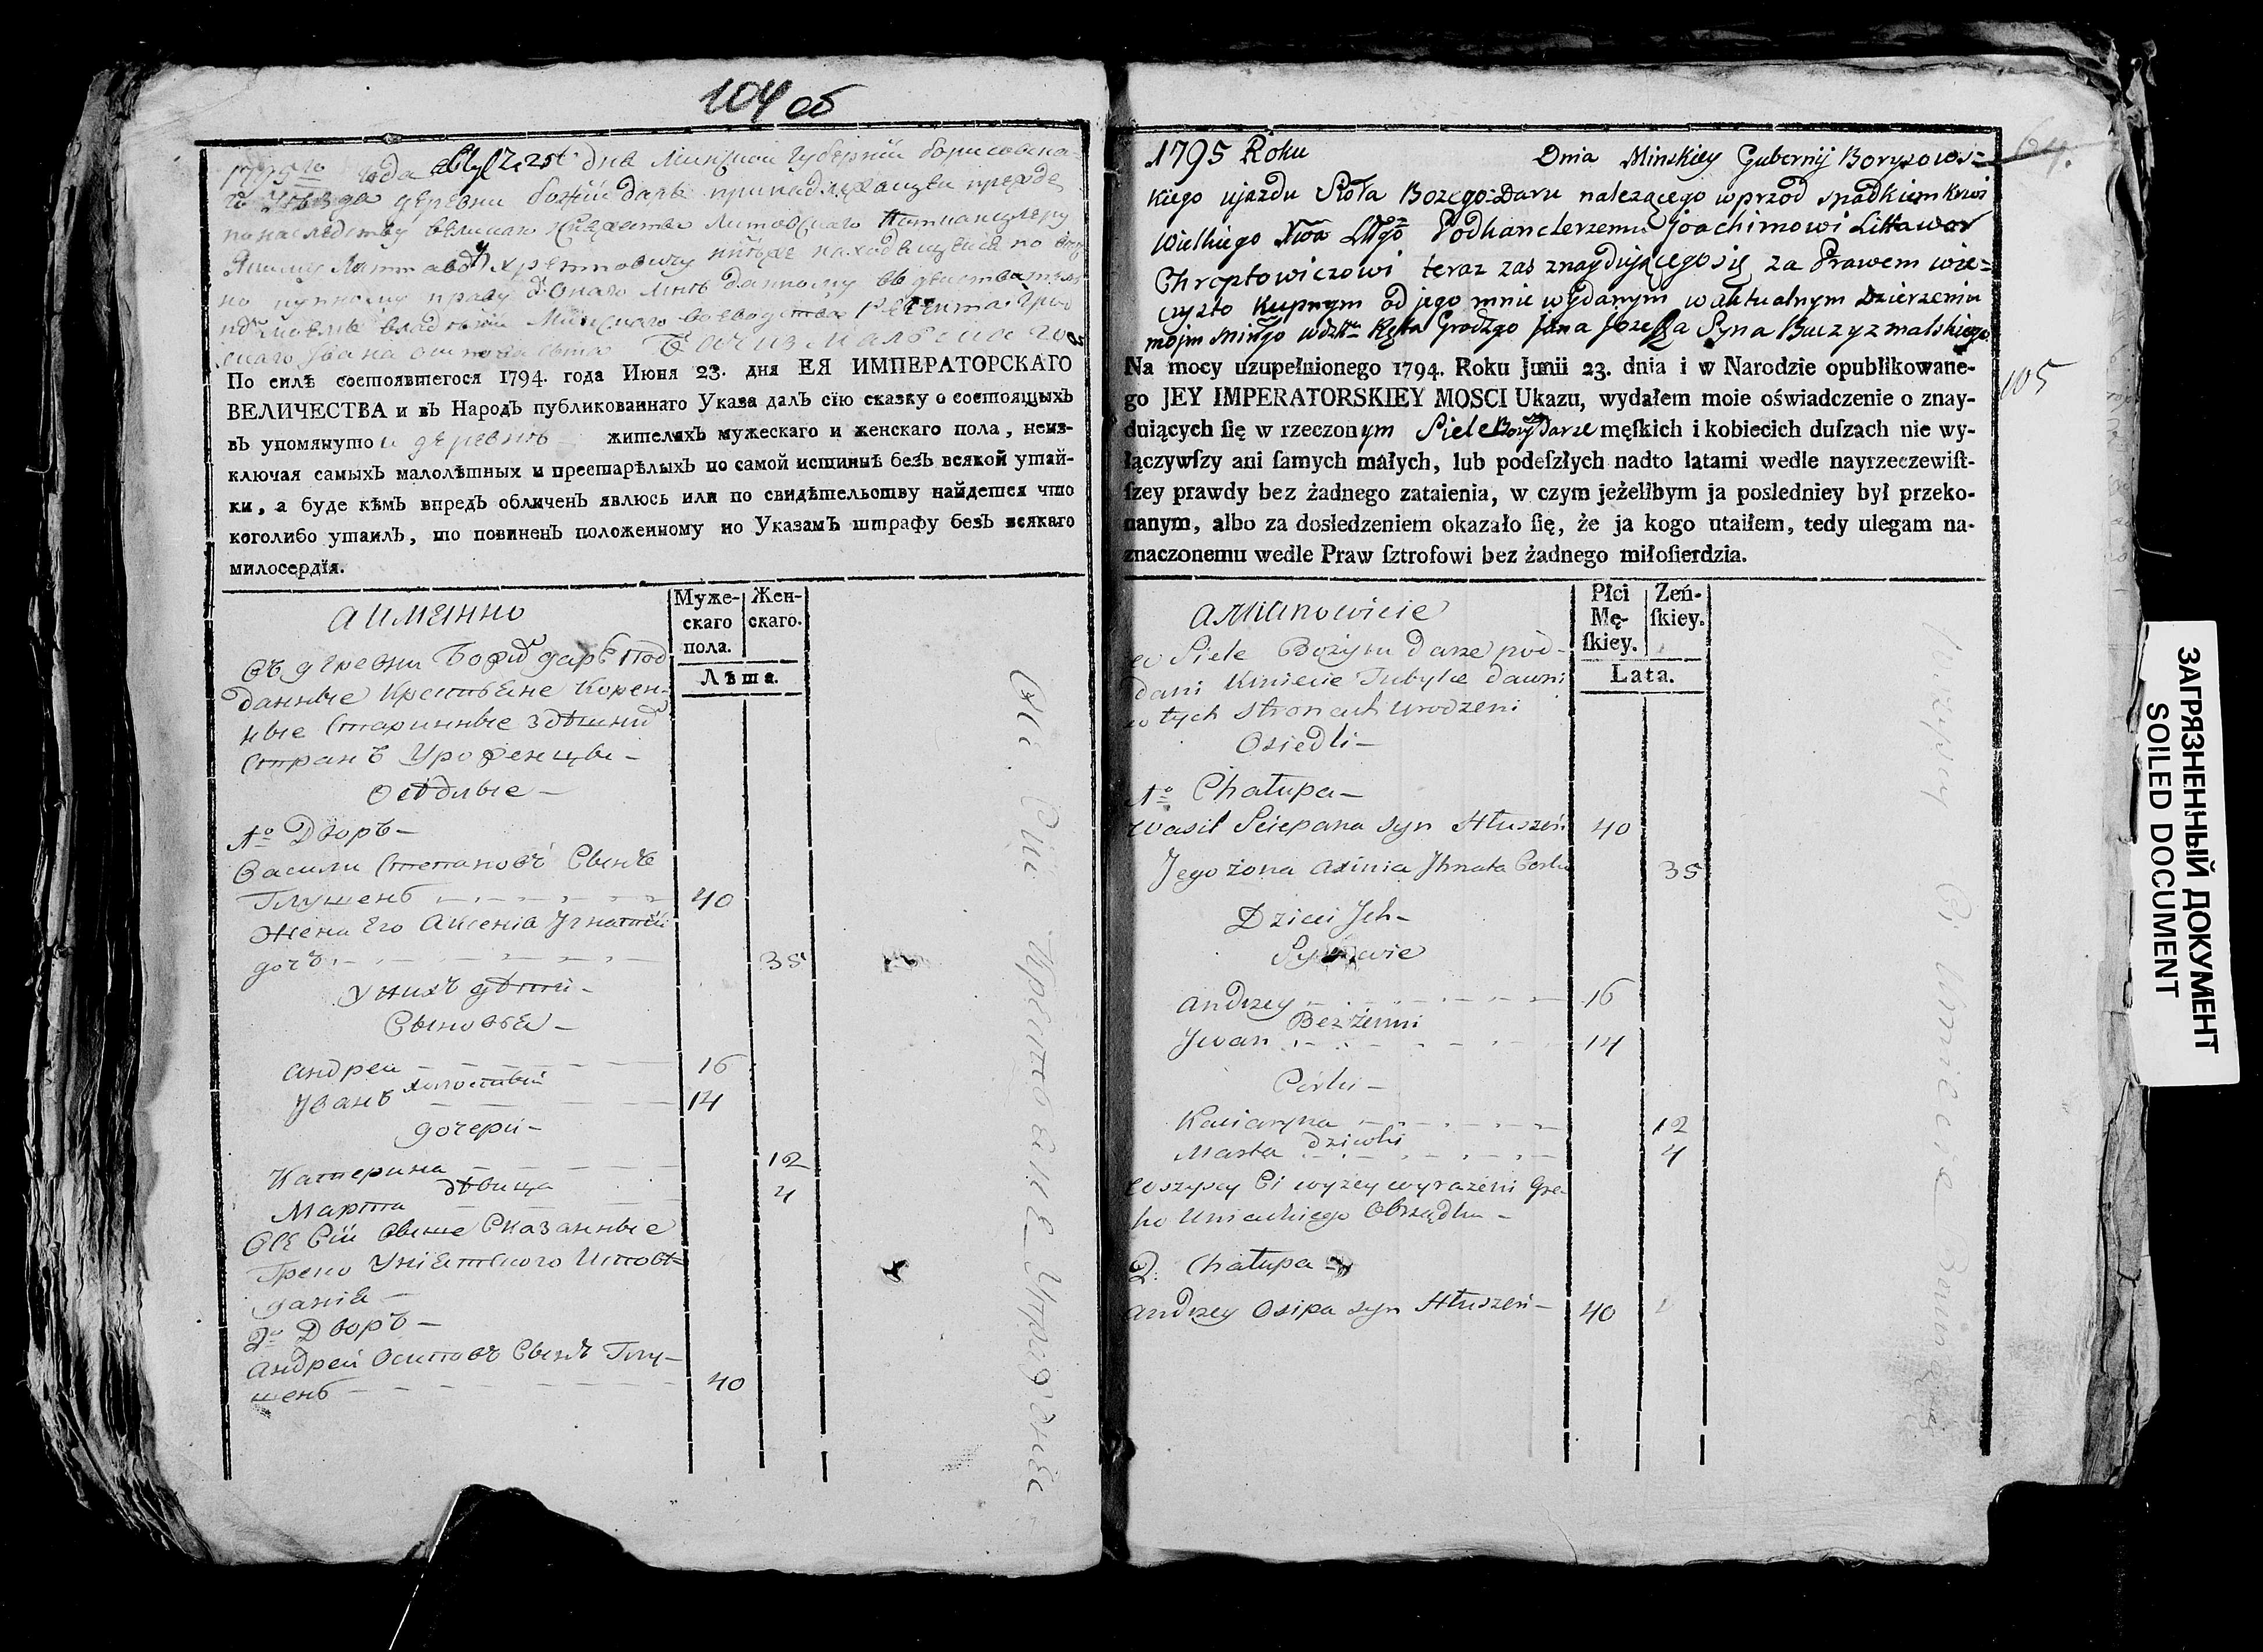 104 об
1795го года дня Минской Губернии Борисовска-
го уезда деревни Божий даръ принадлежащей прежде
по наследству великаго Княжества Литовскаго
Хрептовичу ныне находящейся по
По силѣ состоявшегося 1794. года Июня 23. дня ЕЯ ИМПЕРАТОРСКАГО
ВЕЛИЧЕСТВА и въ Народъ публикованнаго Указа далъ сїю сказку о состоящыхъ
въ упомянутой деревнѣ жителяхъ мужескаго и женскаго пола, неиз-
ключая самыхъ малолѣтныхъ и престарѣлыхъ по самой истиннѣ безъ всякой утай-
ки, а буде кѣмъ впредь обличенъ явлюсь или по свидѣтельству найдется что
коголибо утаилъ, то повиненъ положенному по Указамъ штрафу безъ всякаго
милосердїя.
а именно
Муже-
скаго
пола.
Жен-
скаго.
Лѣта.
Въ деревни Божій даръ под
данные Крестьяне Корен-
ные Старинные здѣшнихъ
Странъ Уроженцы –
Осѣдлые –
1º Дворъ –
Василий Степановъ Сынъ
Глушень 40
Жена Его Аксенія Игнатій
дочъ 35
У нихъ дѣти –
Сыновья –
Андрей 16
холостый
Иванъ 14
дочери –
Катерина 12
дѣвица
Марта 4
Всѣ Сіи свыше Сказанные
Греко Уніятского Исповѣ-
данія –
2º Дворъ –
Андрей Осиповъ Сынъ Глу-
шень 40
Всѣ Сіи Крестьяне Урожденые
64.
105
1795 Roku Dnia Minskiey Gubernij Borysows-
kiego ujazdu Sioła Bozego-Daru nalezącego wprzod spadkiem krwi
Wielkiego Xwa Littgo Podkanclerzemu Joachimowi Littawor
Chreptowiczowi teraz zas znaydującego się za Prawem wie-
czysto kupnym od jego mnie wydanym w aktualnym Dzierzeniu
mojm Mińgo Wdztw Rgta Grodzgo Jana Jozefa Syna Buczyzmalskiego
Na mocy uzupełnionego 1794. Roku Junii 23. dnia i w Narodzie opublikowane-
go JEY IMPERATORSKIEY MOSCI Ukazu, wydałem moie oświadczenie o znay-
duiących ſię w rzeczonym Siele Bozym Darze męſkich i kobiecich duſzach nie wy-
łączywſzy ani ſamych małych, lub podeſzłych nadto latami wedle nayrzeczewiſt-
ſzey prawdy bez żadnego zataienia, w czym jeżelibym ja posledniey był przeko-
nanym, albo za dosledzeniem okazało ſię, że ja kogo utaiłem, tedy ulegam na-
znaczonemu wedle Praw ſztrofowi bez żadnego miłoſierdzia.
a Mianowicie
Płci
Mę-
ſkiey.
Zeń-
ſkiey.
Lata.
w Siele Bożym Darze pod-
dani Kmiecie Tubylce dawni
w tych stronach urodzeni
Osiedli –
1º Chałupa –
Wasil Sciepana syn Hłuszeń 40
Jego żona Axinia Jhnata Corka 35
Dzieci Jch –
Synowie
Andrzey 16
Bezżenni
Jwan 14
Corki –
Kaciaryna 12
dziewki
Marta 4
Wszyscy Ci wyzey wyrażeni Gre-
ko Uniackiego Obrządku –
2. Chałupa –
Andrzey Osipa syn Hłuszeń – 40
Wszyscy Ci Kmiecie
ЗАГРЯЗНЕННЫЙ ДОКУМЕНТ
SOILED DOCUMENT